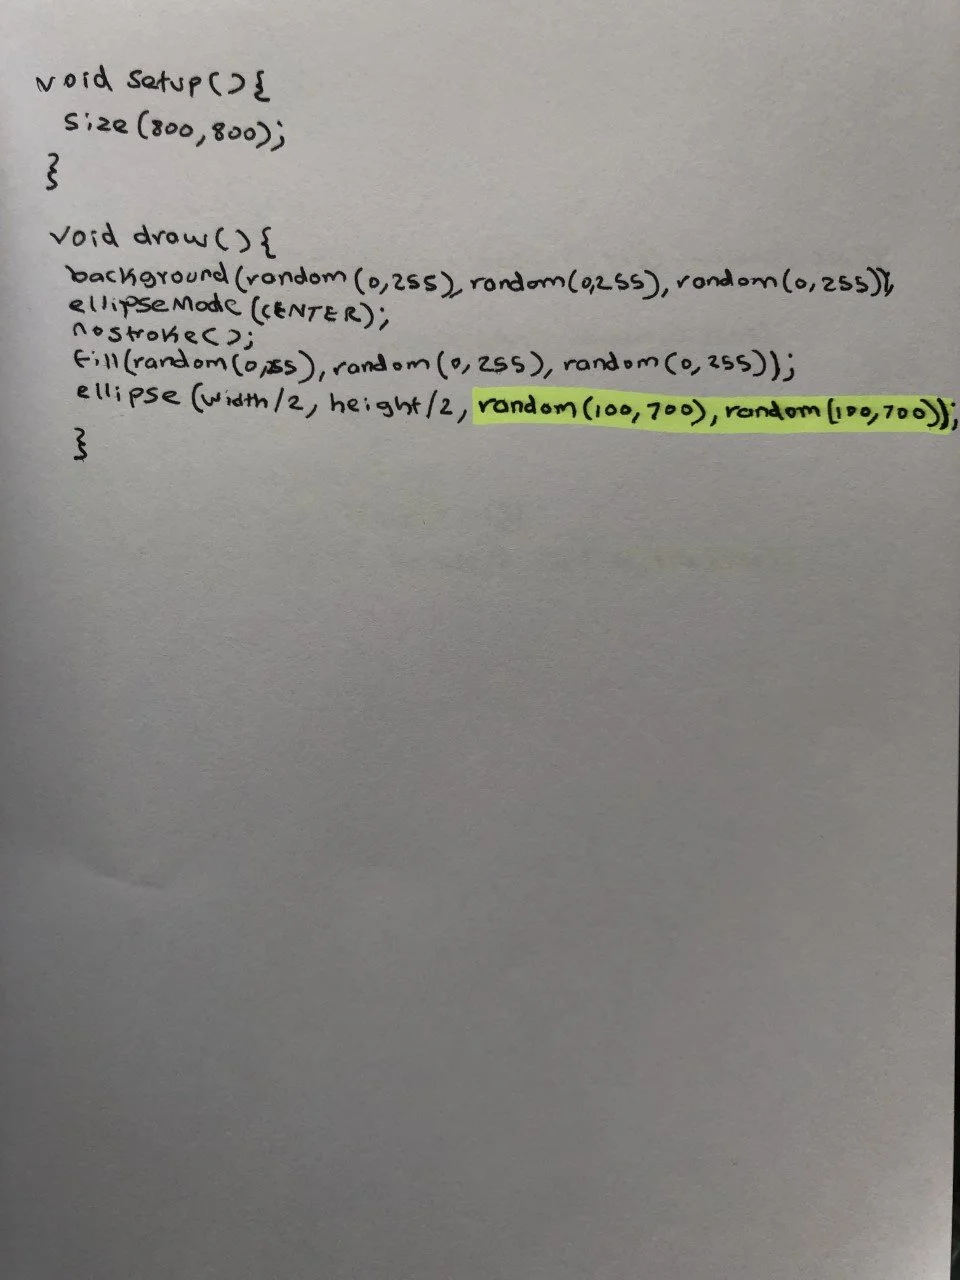 void setup(){
size(800,800);
}
void draw(){
background(random(0,255), random(0,255), random(0,255));
ellipseMode(CENTER);
nostroke();
fill(random(0,255), random(0,255), random(0,255));
ellipse(width/2, height/2, random(100,700), random(100,700));
}